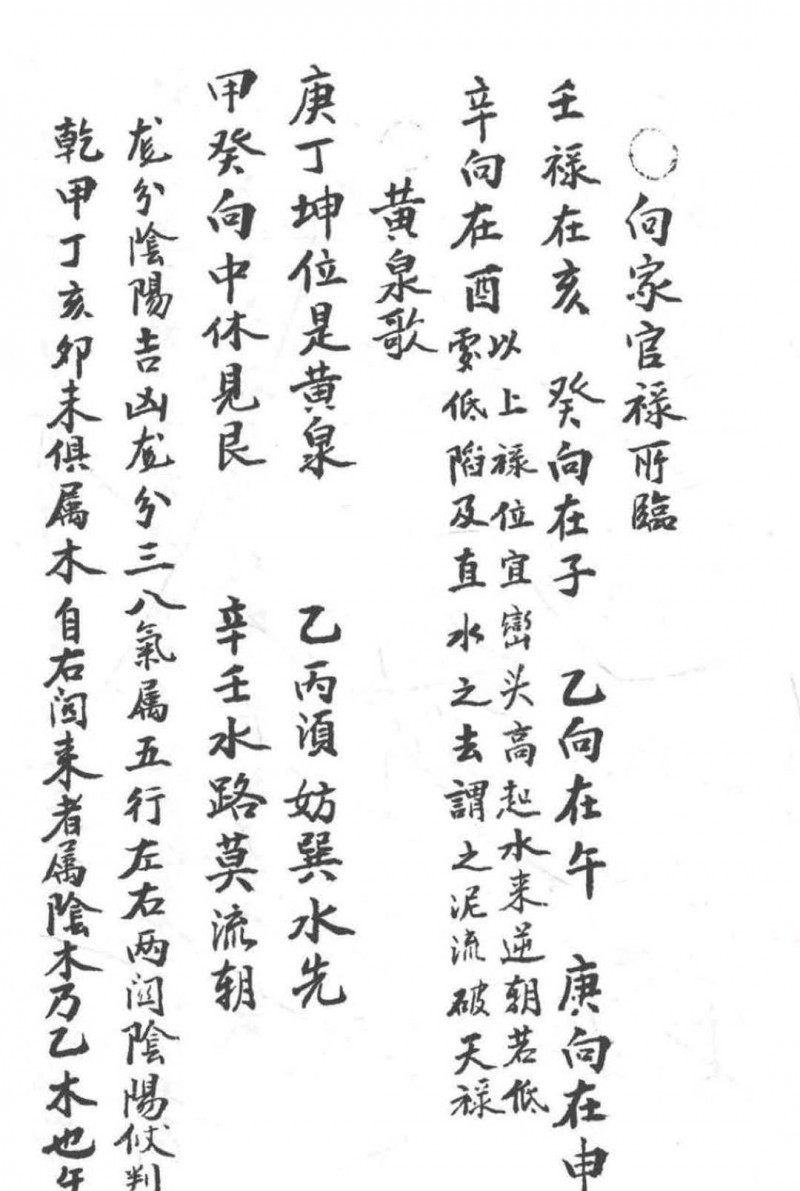 〇向家官禄所臨
壬禄在亥 癸向在子 乙向在午 庚向在申
辛向在酉 以上禄位宜巒头高起水来逆朝若低
要低陷及直水之去謂之泥流破天禄
黄泉歌
庚丁坤位是黄泉 乙丙須妨巽水先
甲癸向中休見艮 辛壬水路莫流朝
龙分陰陽吉凶龙分三八氣属五行左右两関陰陽仗判
乾甲丁亥卯未俱属木自右関来者属陰木乃乙木也午